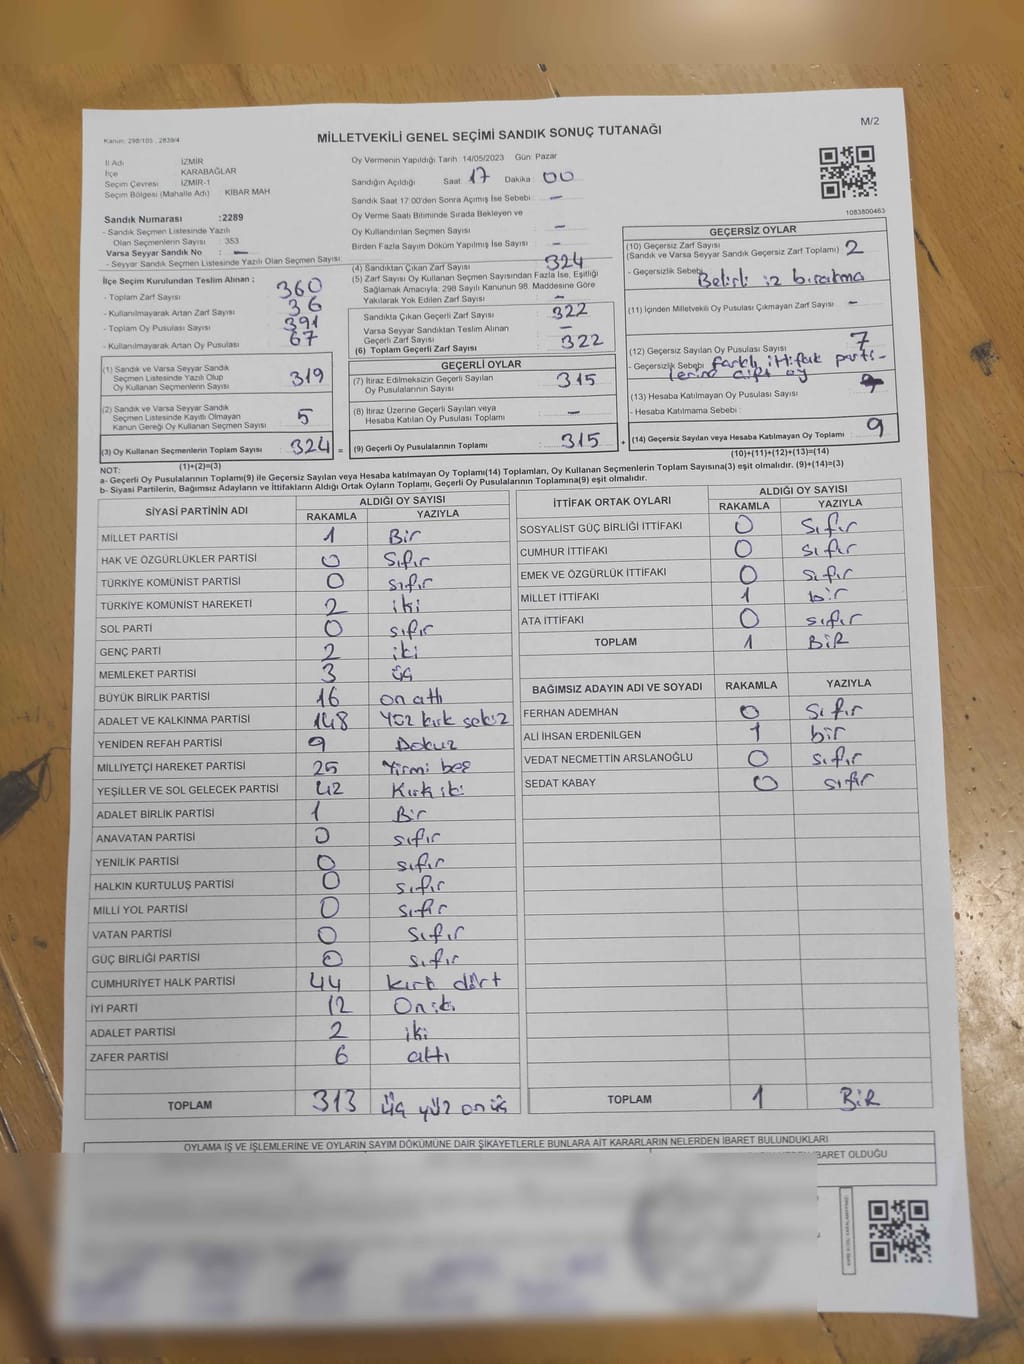 M/2
Kanun: 298/105 , 2839/4
MİLLETVEKİLİ GENEL SEÇİMİ SANDIK SONUÇ TUTANAĞI
İl Adı : İZMİR
İlçe : KARABAĞLAR
Seçim Çevresi : İZMİR-1
Seçim Bölgesi (Mahalle Adı) : KİBAR MAH
Sandık Numarası :2289
- Sandık Seçmen Listesinde Yazılı
Olan Seçmenlerin Sayısı : 353
Varsa Seyyar Sandık No : —
- Seyyar Sandık Seçmen Listesinde Yazılı Olan Seçmen Sayısı:
İlçe Seçim Kurulundan Teslim Alınan :
- Toplam Zarf Sayısı : 360
- Kullanılmayarak Artan Zarf Sayısı : 36
- Toplam Oy Pusulası Sayısı : 391
- Kullanılmayarak Artan Oy Pusulası : 67
(1) Sandık ve Varsa Seyyar Sandık
Seçmen Listesinde Yazılı Olup
Oy Kullanan Seçmenlerin Sayısı : 319
(2) Sandık ve Varsa Seyyar Sandık
Seçmen Listesinde Kayıtlı Olmayan
Kanun Gereği Oy Kullanan Seçmen Sayısı : 5
(3) Oy Kullanan Seçmenlerin Toplam Sayısı : 324 =
(1)+(2)=(3)
Oy Vermenin Yapıldığı Tarih :14/05/2023 Gün: Pazar
Sandığın Açıldığı Saat : 17 Dakika : 00
Sandık Saat 17.00'den Sonra Açılmış İse Sebebi : —
Oy Verme Saati Bitiminde Sırada Bekleyen ve
Oy Kullandırılan Seçmen Sayısı : —
Birden Fazla Sayım Döküm Yapılmış İse Sayısı : —
(4) Sandıktan Çıkan Zarf Sayısı : 324
(5) Zarf Sayısı Oy Kullanan Seçmen Sayısından Fazla İse, Eşitliği
Sağlamak Amacıyla: 298 Sayılı Kanunun 98. Maddesine Göre
Yakılarak Yok Edilen Zarf Sayısı : —
Sandıkta Çıkan Geçerli Zarf Sayısı : 322
Varsa Seyyar Sandıktan Teslim Alınan
Geçerli Zarf Sayısı : —
(6) Toplam Geçerli Zarf Sayısı : 322
GEÇERLİ OYLAR
(7) İtiraz Edilmeksizin Geçerli Sayılan
Oy Pusulalarının Sayısı : 315
(8) İtiraz Üzerine Geçerli Sayılan veya
Hesaba Katılan Oy Pusulası Toplamı : —
(9) Geçerli Oy Pusulalarının Toplamı : 315 +
1083800463
GEÇERSİZ OYLAR
(10) Geçersiz Zarf Sayısı
(Sandık ve Varsa Seyyar Sandık Geçersiz Zarf Toplamı) : 2
- Geçersizlik Sebebi : Belirli iz bırakma
(11) İçinden Milletvekili Oy Pusulası Çıkmayan Zarf Sayısı : —
(12) Geçersiz Sayılan Oy Pusulası Sayısı : 7
- Geçersizlik Sebebi : farklı ittifak parti-
lerine çift oy
(13) Hesaba Katılmayan Oy Pusulası Sayısı :
- Hesaba Katılmama Sebebi :
(14) Geçersiz Sayılan veya Hesaba Katılmayan Oy Toplamı : 9
(10)+(11)+(12)+(13)=(14)
NOT:
a- Geçerli Oy Pusulalarının Toplamı(9) ile Geçersiz Sayılan veya Hesaba katılmayan Oy Toplamı(14) Toplamları, Oy Kullanan Seçmenlerin Toplam Sayısına(3) eşit olmalıdır. (9)+(14)=(3)
b- Siyasi Partilerin, Bağımsız Adayların ve İttifakların Aldığı Ortak Oyların Toplamı, Geçerli Oy Pusulalarının Toplamına(9) eşit olmalıdır.
SİYASİ PARTİNİN ADI ALDIĞI OY SAYISI
RAKAMLA YAZIYLA
MİLLET PARTİSİ 1 Bir
HAK VE ÖZGÜRLÜKLER PARTİSİ 0 Sıfır
TÜRKİYE KOMÜNİST PARTİSİ 0 sıfır
TÜRKİYE KOMÜNİST HAREKETİ 2 iki
SOL PARTİ 0 sıfır
GENÇ PARTİ 2 iki
MEMLEKET PARTİSİ 3 üç
BÜYÜK BİRLİK PARTİSİ 16 on altı
ADALET VE KALKINMA PARTİSİ 148 Yüz kırk sekiz
YENİDEN REFAH PARTİSİ 9 Dokuz
MİLLİYETÇİ HAREKET PARTİSİ 25 Yirmi beş
YEŞİLLER VE SOL GELECEK PARTİSİ 42 Kırk iki
ADALET BİRLİK PARTİSİ 1 Bir
ANAVATAN PARTİSİ 0 sıfır
YENİLİK PARTİSİ 0 sıfır
HALKIN KURTULUŞ PARTİSİ 0 sıfır
MİLLİ YOL PARTİSİ 0 sıfır
VATAN PARTİSİ 0 sıfır
GÜÇ BİRLİĞİ PARTİSİ 0 sıfır
CUMHURİYET HALK PARTİSİ 44 kırk dört
İYİ PARTİ 12 On iki
ADALET PARTİSİ 2 iki
ZAFER PARTİSİ 6 altı
TOPLAM 313 üç yüz on üç
İTTİFAK ORTAK OYLARI ALDIĞI OY SAYISI
RAKAMLA YAZIYLA
SOSYALİST GÜÇ BİRLİĞİ İTTİFAKI 0 Sıfır
CUMHUR İTTİFAKI 0 sıfır
EMEK VE ÖZGÜRLÜK İTTİFAKI 0 sıfır
MİLLET İTTİFAKI 1 bir
ATA İTTİFAKI 0 sıfır
TOPLAM 1 BİR
BAĞIMSIZ ADAYIN ADI VE SOYADI RAKAMLA YAZIYLA
FERHAN ADEMHAN 0 Sıfır
ALİ İHSAN ERDENİLGEN 1 bir
VEDAT NECMETTİN ARSLANOĞLU 0 sıfır
SEDAT KABAY 0 sıfır
TOPLAM 1 BİR
OYLAMA İŞ VE İŞLEMLERİNE VE OYLARIN SAYIM DÖKÜMÜNE DAİR ŞİKAYETLERLE BUNLARA AİT KARARLARIN NELERDEN İBARET BULUNDUKLARI
BARET OLDUĞU